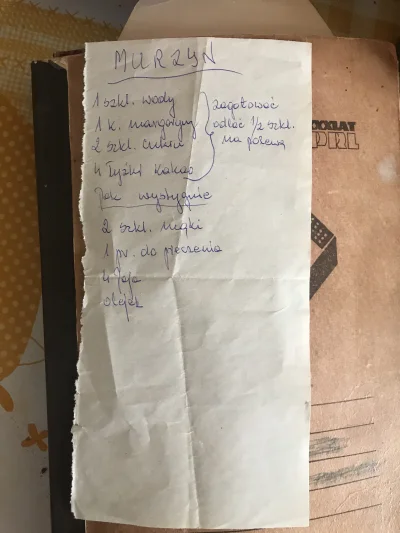 MURZYN
1 szkl. wody
1 k. margaryny
2 szkl. cukru
4 łyżki kakao
zagotować
odlać 1/2 szkl.
na polewę
Jak wystygnie
2 szkl. mąki
1 pr. do pieczenia
4 jaja
olejek